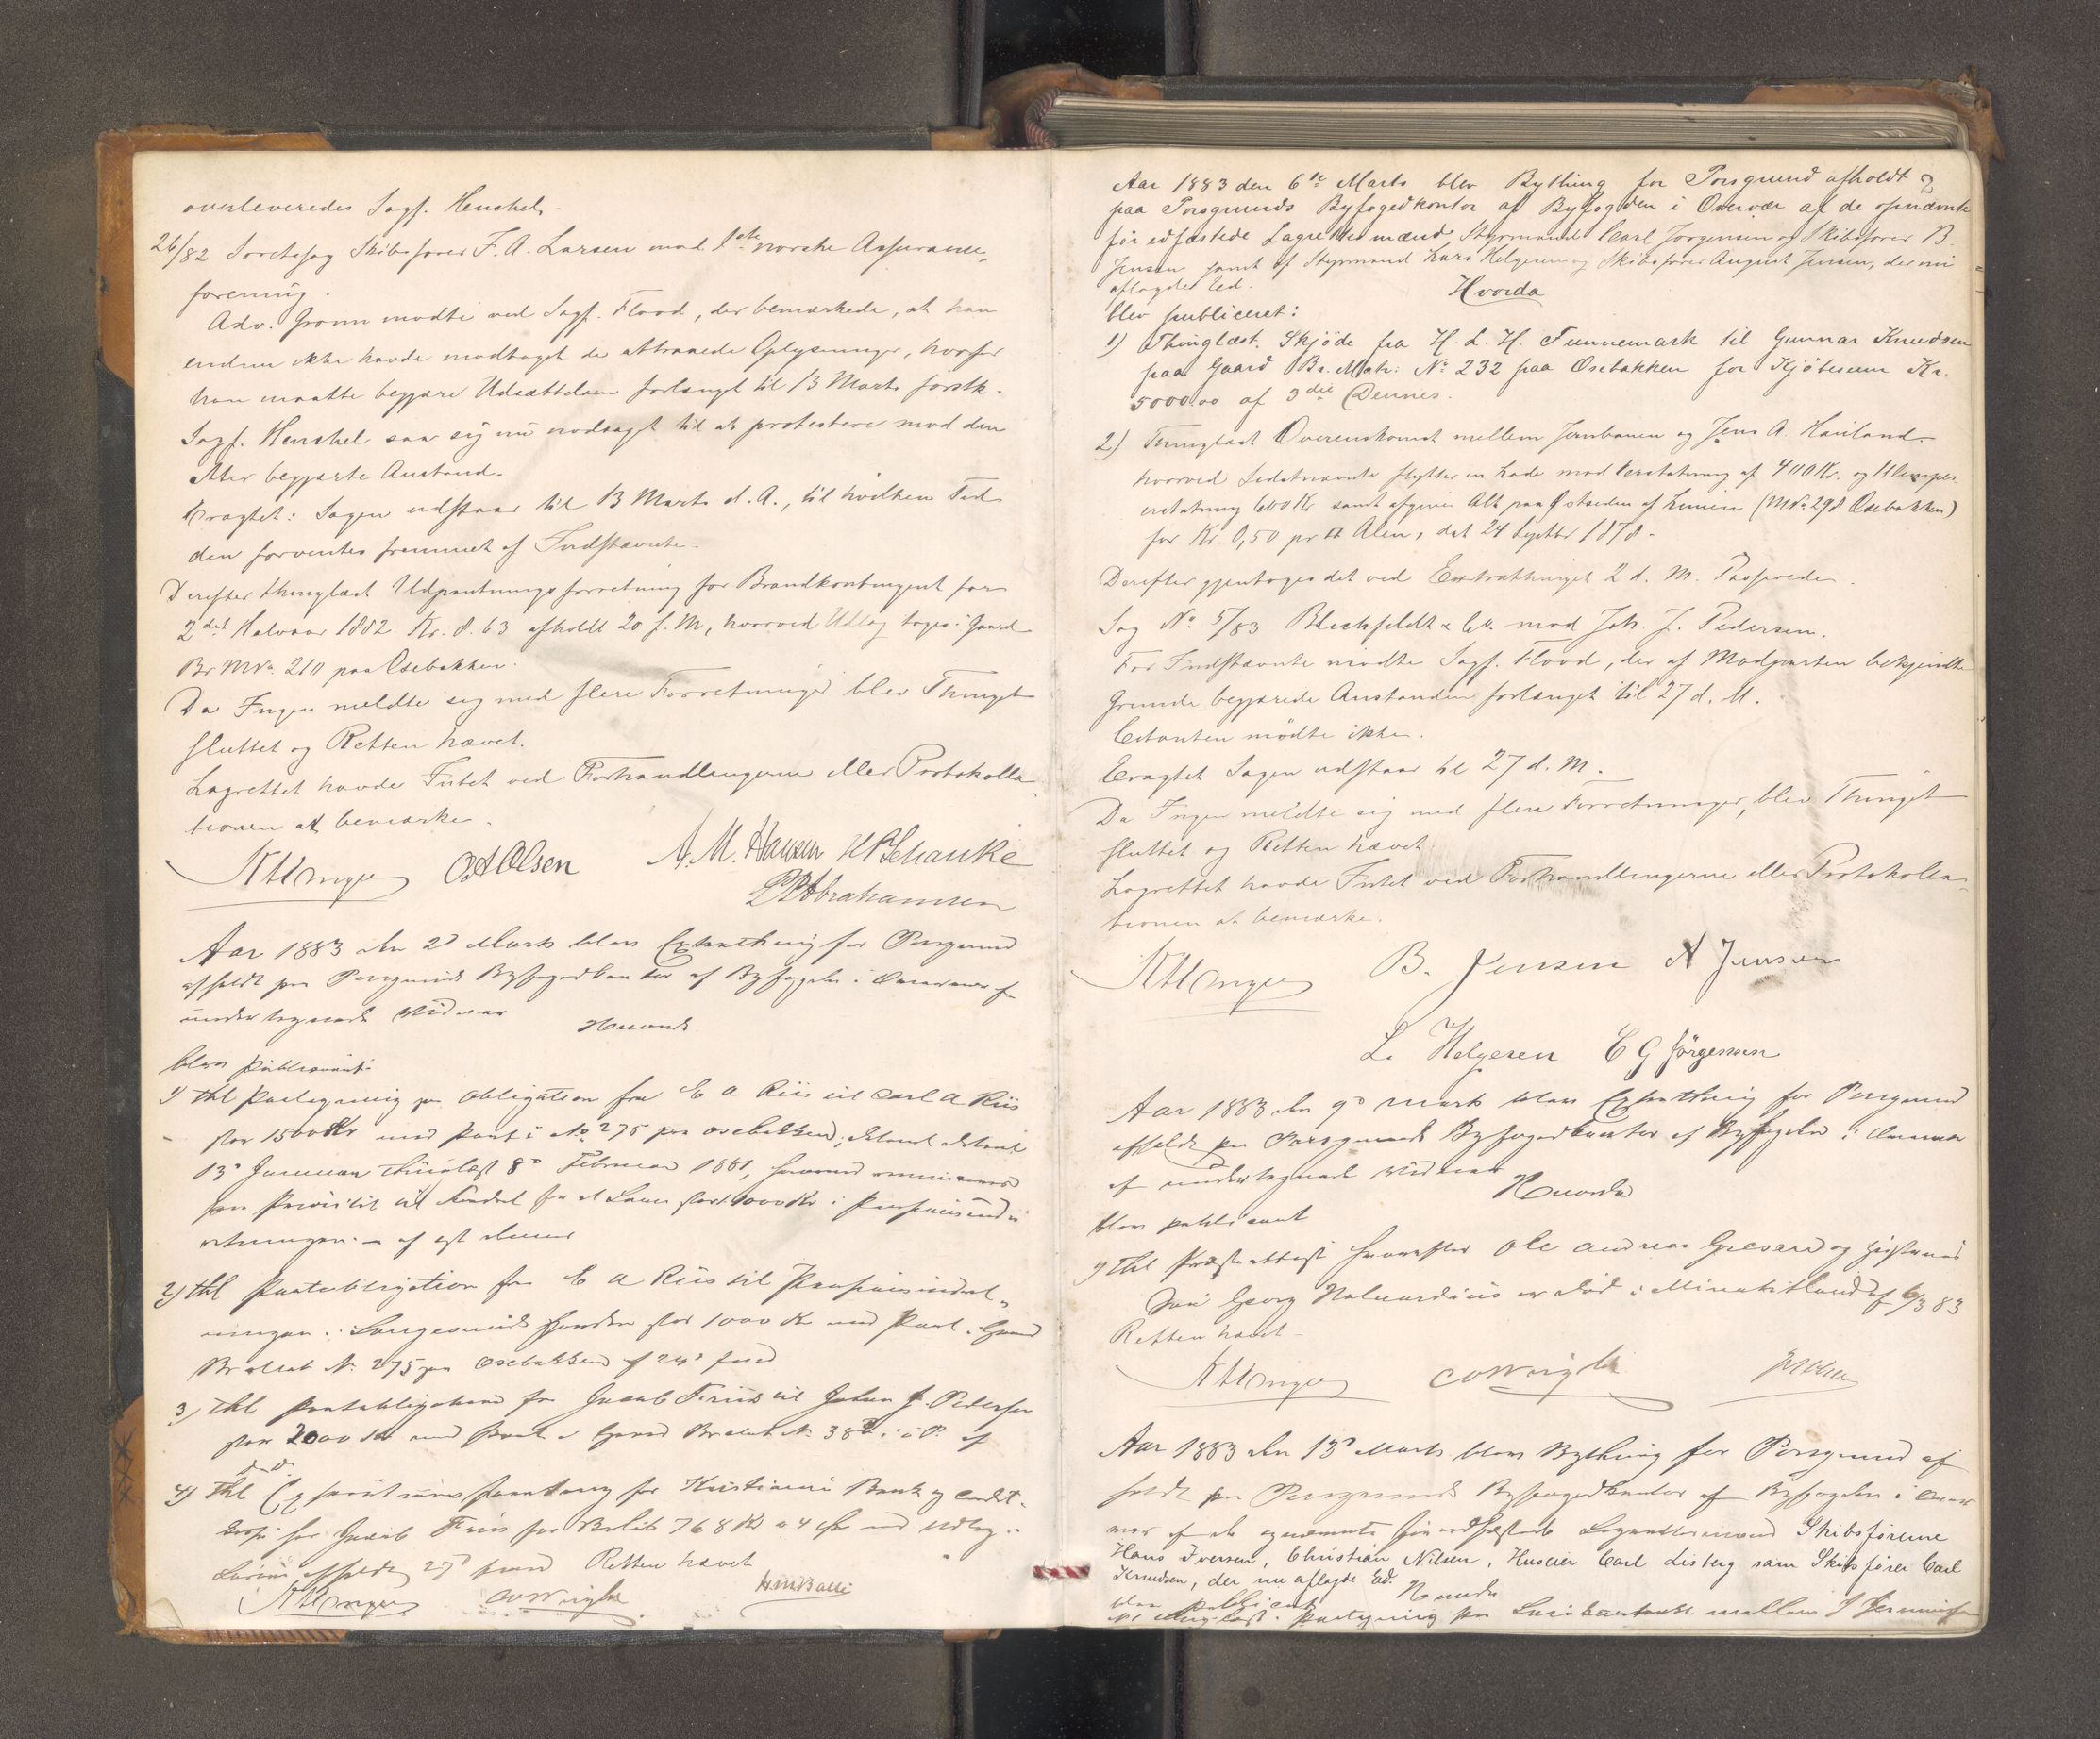 overleveredes Sagf. Henschel.
26/82 Soretssag Skibsfører F. A. Larsen mod 1ste norske Assurance-
forening.
Adv. Grønn mødte ved Sagf. Flood, der bemærkede, at han
endnu ikke havde modtaget de attraaede Oplysninger, hvorfor
han maatte begjære Udsættelsen forlænget til 13 Marts førstk.
Sagf. Henschel saa sig nu nødsaget til at protestere mod den
atter begjærte Anstand.
Eragtet: Sagen udstaar til 13 Marts d. A., til hvilken Tid
den forventes fremmet af Indstævnte.
Derefter thinglæst Udpantningsforretning for Brandkontingent for
2det Halvaar 1882 Kr. 8.63 afholdt 20 f. M, hvorved Udlæg toges i Gaard
Br M No 210 paa Osebakken.
Da Ingen meldte sig med flere Forretninger blev Thinget
sluttet og Retten hævet.
Lagrettet havde Intet ved Forhandlingerne eller Protokolla-
tionen at bemærke.
O. A. Olsen A. M. Hansen H P Schanke
P. Abrahamsen
Aar 1883 den 2d Marts blev Extrathing for Porsgrund
afholdt paa Porsgrunds Byfogedkontor af Byfogden i Overvær af
undertegnede Vidner Hvorda
blev publiceret:
1) thl Paategning paa Obligation fra C A Riis til Carl A Riis
stor 1500 Kr med Pant i No 275 paa Osebakken, dateret
13de Januar thinglæst 8de Februar 1881, hvorved
sin Prioritet til Fordel for et Laan stort 1000 Kr i
af 1st
2) thl Pantobligation fra C A Riis til
stor 1000 Kr med Pant i Gaard
Br Mat No 275 paa Osebakken af 24de
3) thl Pantobligation fra Jacob Friis til Johan J. Pedersen
stor 2000 Kr med Pant i Gaard Br Mat No 38 af
d. d.
4) thl for Kristiania Bank og
hos Jacob Friis for Beløb 768 Kr 4 Øre med Udlæg i
afholdt 27de Retten hævet
Aar 1883 den 6te Marts blev Bything for Porsgrund afholdt 2
paa Porsgrunds Byfogedkontor af Byfogden i Overvær af de opnævnte
før edfæstede Lagrettesmænd Styrmand Carl Jørgensen og Skibsfører B.
Jensen samt af Styrmand Lars Helgesen og Skibsfører August Jensen, der nu
aflagde Ed. Hvorda
blev publiceret:
1) Thinglæst. Skjøde fra H. L. H. Funnemark til Gunnar Knudsen
paa Gaard Br. Matr: No 232 paa Osebakken for Kjøbesum Kr.
5000.00 af 3die Dennes.
2) Thinglæst Overenskomst mellem Jernbanen og Jens A. Haviland
hvorved Sidstnævnte flytter en Lade mod Erstatning af 400 Kr. og Ulempes-
erstatning 600 Kr samt afgiver Alt paa Østsiden af Linien (M No 298 Osebakken)
for Kr. 0,50 pr □ Alen, dat 24 Septbr 1878.
Derefter gjentoges det ved Extrathinget 2 d. M. Passerede.
Sag No 5/83 Blichfeldt & Co. mod Joh. J. Pedersen.
For Indstævnte mødte Sagf. Flood, der af Modparten bekjendte
Grunde begjærede Anstanden forlænget til 27 d. M.
Citanten mødte ikke.
Eragtet Sagen udstaar til 27 d. M.
Da Ingen meldte sig med flere Forretninger, blev Thinget
sluttet og Retten hævet.
Lagrettet havde Intet ved Forhandlingerne eller Protokolla-
tionen at bemærke.
B. Jensen A Jensen
L. Helgesen C G Jørgensen
Aar 1883 den 9d Marts blev Extrathing for Porsgrund
afholdt paa Porsgrunds Byfogedkontor af Byfogden i Overvær
af undertegnede Vidner Hvorda
blev publiceret
1) thl Præsteattest hvorefter Ole Andreas og
Søn Georg Halvardius er død i af 6/3 83
Retten hævet
Aar 1883 den 13d Marts blev Bything for Porsgrund af-
holdt paa Porsgrunds Byfogedkontor af Byfogden i Over-
vær af de opnævnte før edfæstede Lagrettesmænd Skibsførerne
Hans Iversen, Christian Nilsen, Huseier Carl Lisberg samt Skibsfører Carl
Knudsen, der nu aflagde Ed. Hvorda
blev publiceret
Paategning paa mellem